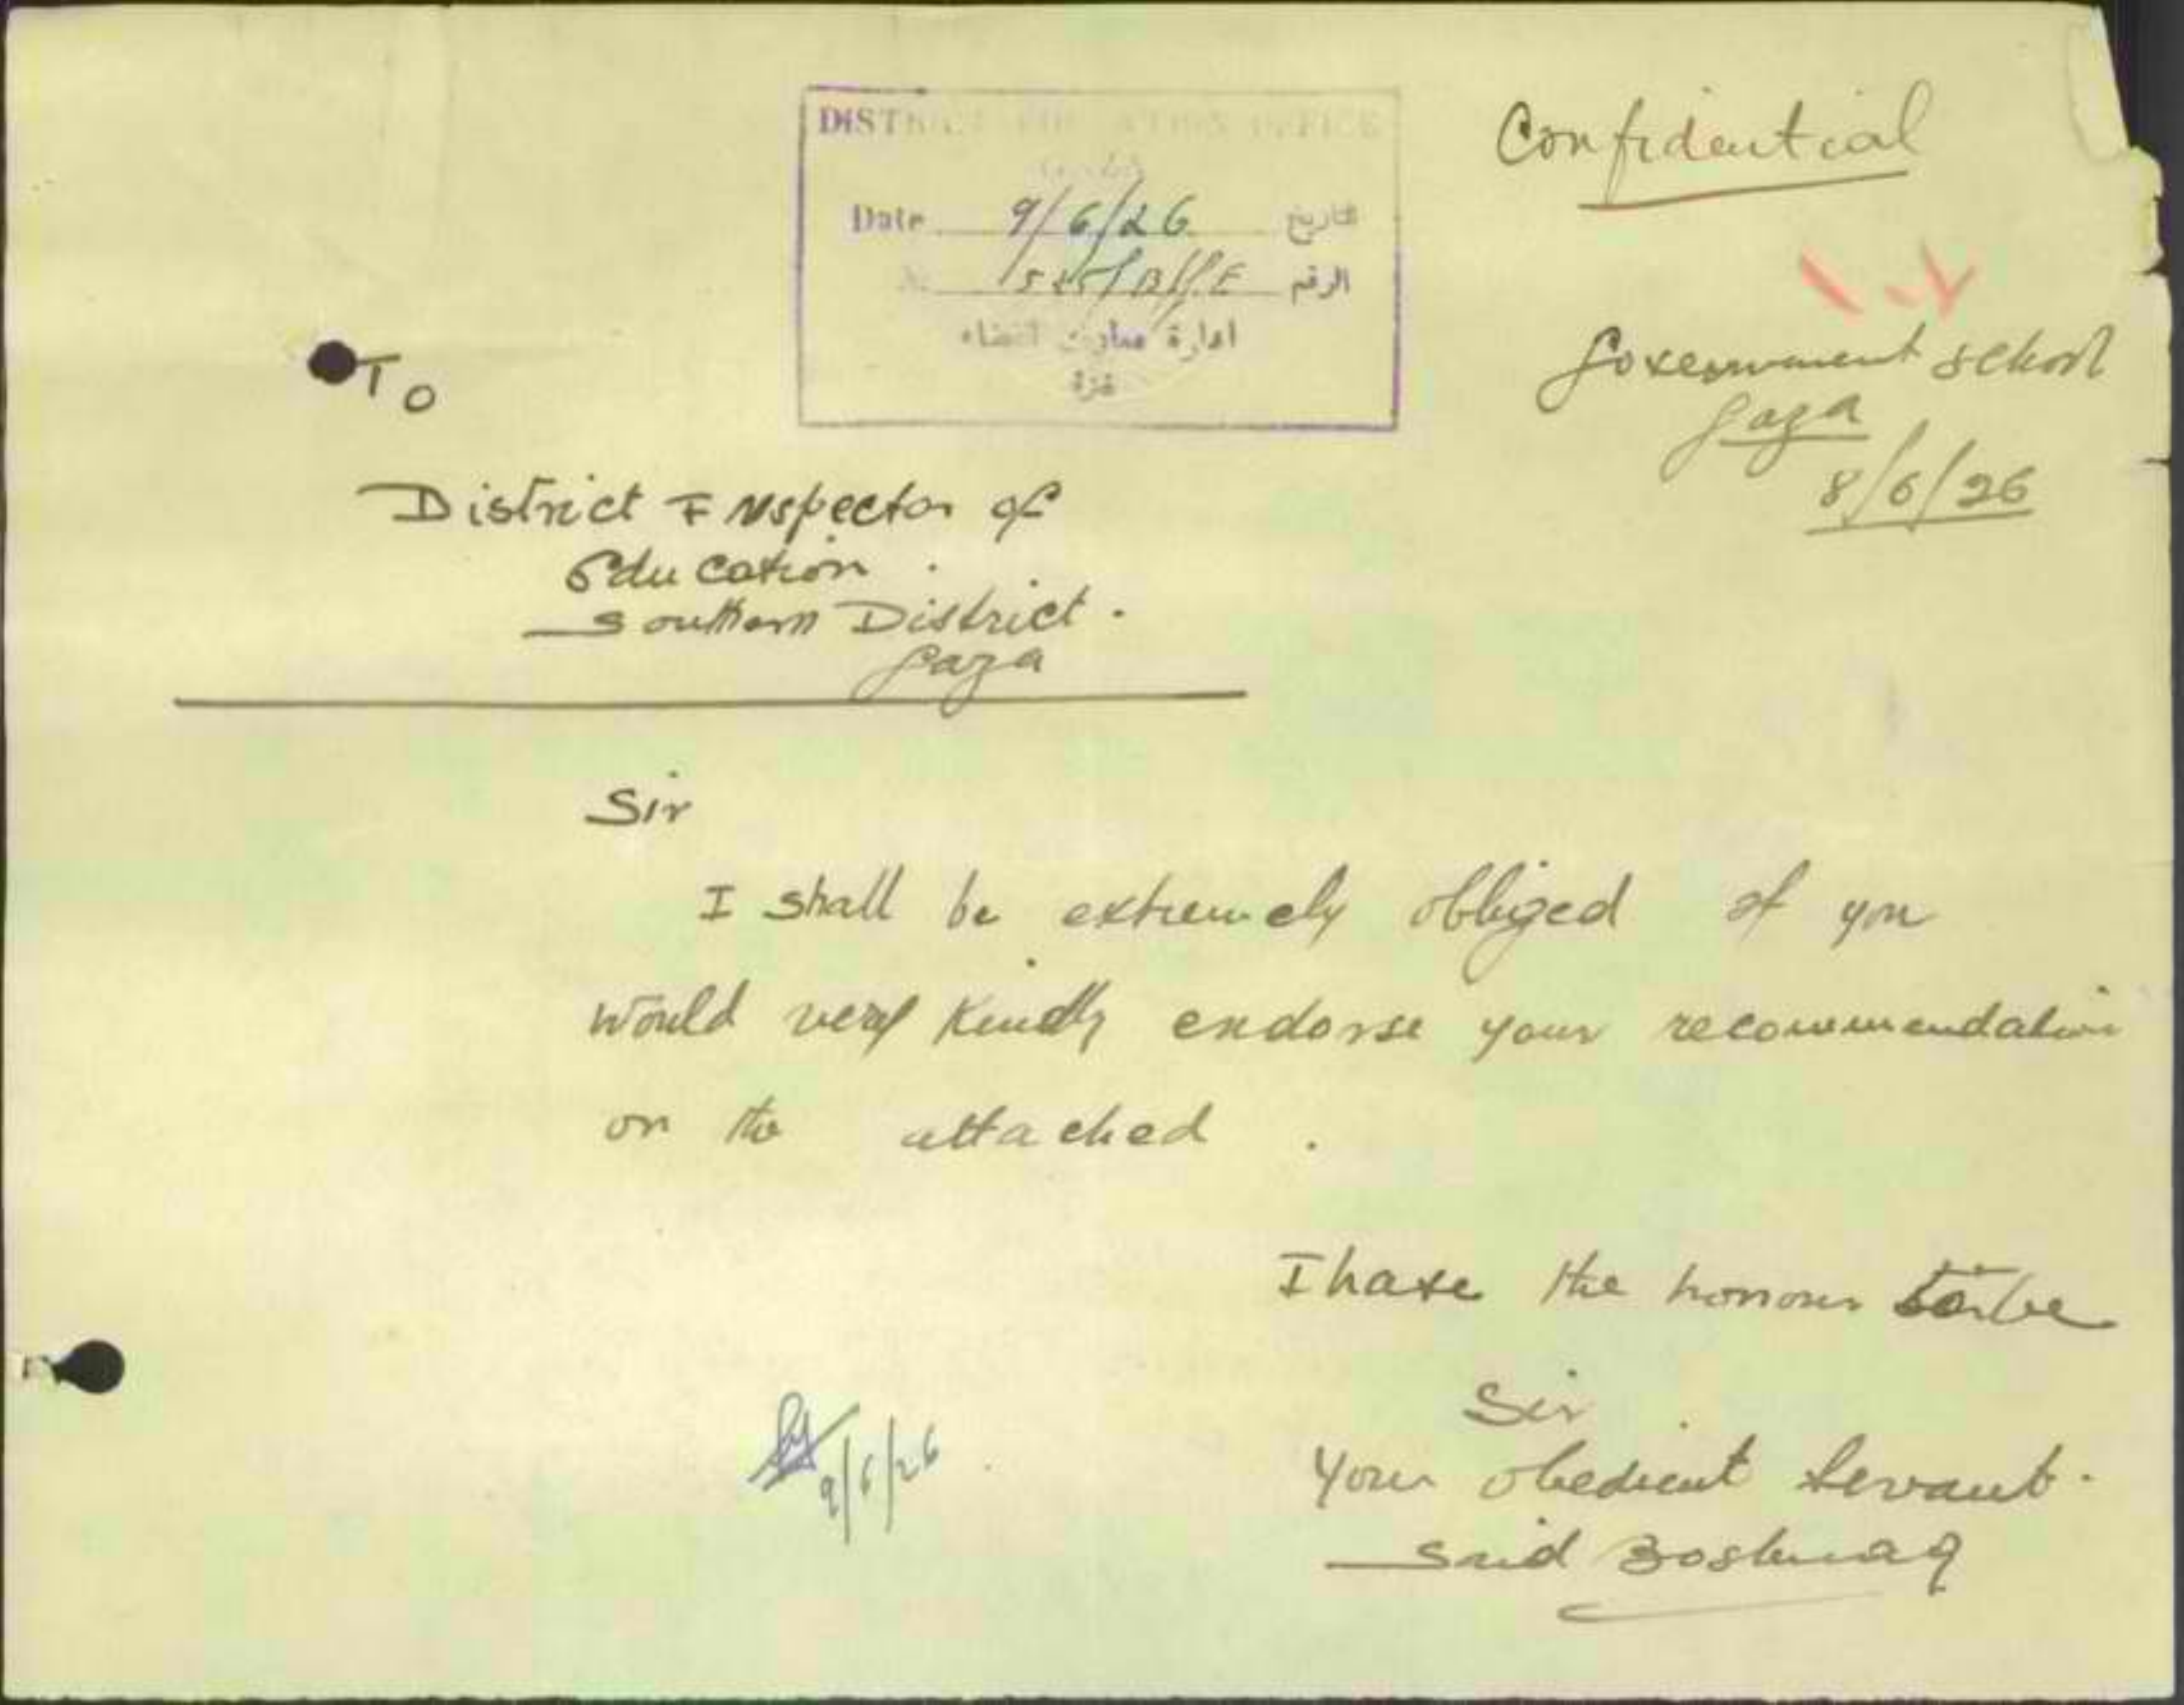 Confidential
DISTRICT EDUCATION OFFICE
Date 9/6/26 تاريخ
الرقم
ادارة معارف القضاء
غزة
Government school
Gaza
8/6/26
To
District Inspector of
Education.
Southern District.
Gaza
Sir
I shall be extremely obliged if you
would very kindly endorse your recommendation
on the attached.
I have the honour to be
Sir
Your obedient servant.
Said Boshnaq
9/6/26